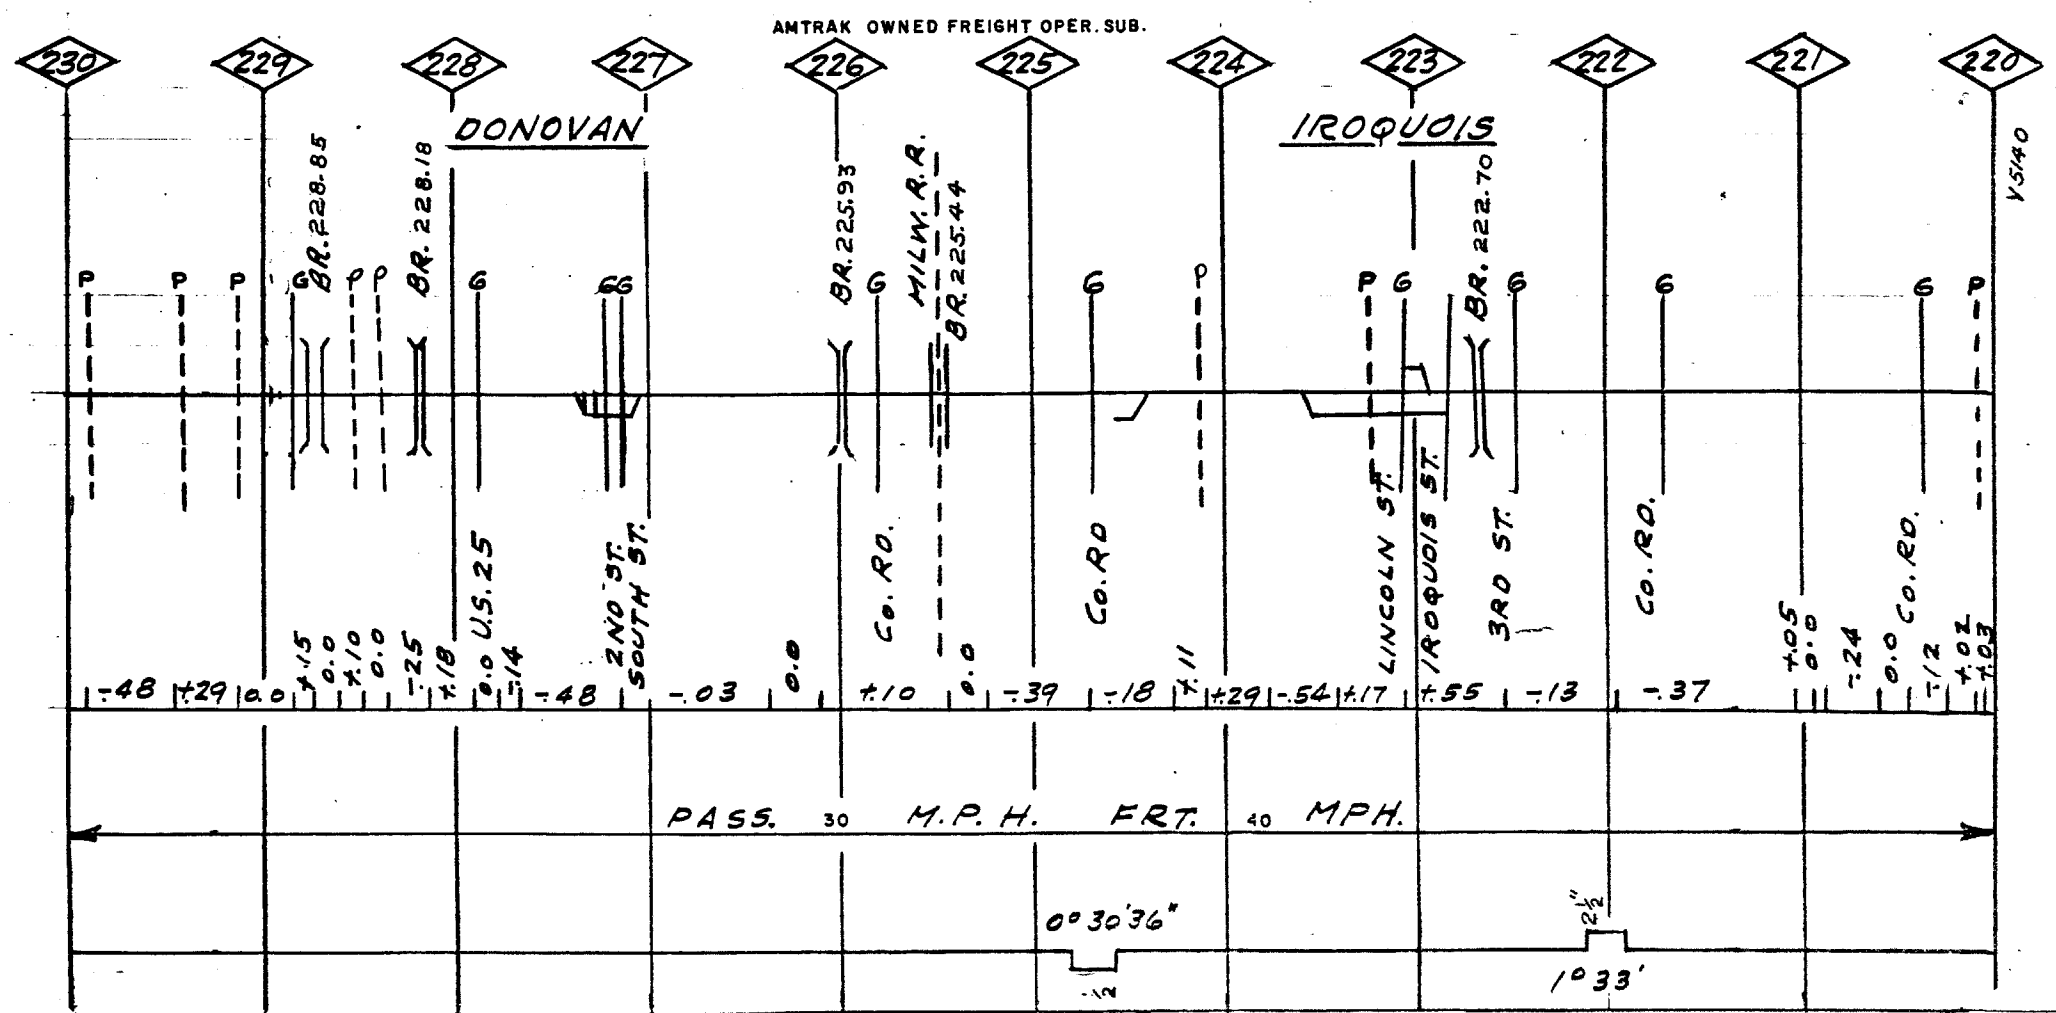 AMTRAK OWNED FREIGHT OPER. SUB.
230 229 228 227 226 225 224 223 222 221 220
DONOVAN IROQUOIS
BR. 228.85
BR. 228.18
BR. 225.93
MILW. R. R.
BR. 225.44
BR. 222.70
V5140
P P P G P P G G G G G P P G G G G P
U.S. 25
2ND ST.
SOUTH ST.
CO. RD.
CO. RD
LINCOLN ST.
IROQUOIS ST.
3RD ST.
CO. RD.
CO. RD.
-.48 +.29 0.0 +.15 0.0 +.10 0.0 -.25 +.18 0.0 -.14 -.48 -.03 0.0 +.10 0.0 -.39 -.18 +.11 +.29 -.54 +.17 +.55 -.13 -.37 +.05 0.0 -.24 0.0 -.12 +.02 +.03
PASS. 30 M.P.H. FRT. 40 MPH.
0° 30' 36"
1/2
2 1/2"
1° 33'